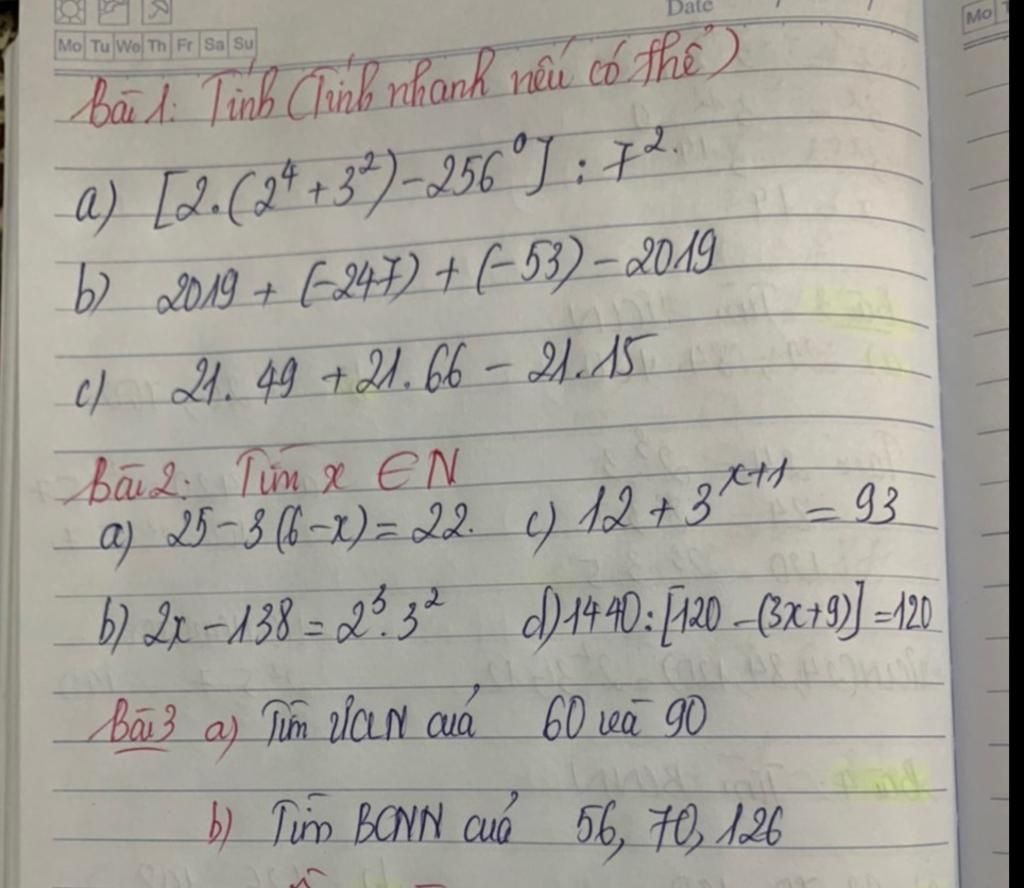 Date
Mo Tu We Th Fr Sa Su
Mo
Bài 1: Tính (Tính nhanh nếu có thể)
a) [2.(2⁴ + 3²) - 256⁰] : 7².
b) 2019 + (-247) + (-53) - 2019
c) 21. 49 + 21. 66 - 21. 15
Bài 2: Tìm x ∈ N
a) 25 - 3(6 - x) = 22. c) 12 + 3ˣ⁺¹ = 93
b) 2x - 138 = 2³. 3² d) 1440 : [120 - (3x+9)] = 120
Bài 3 a) Tìm ƯCLN của 60 và 90
b) Tìm BCNN của 56, 70, 126